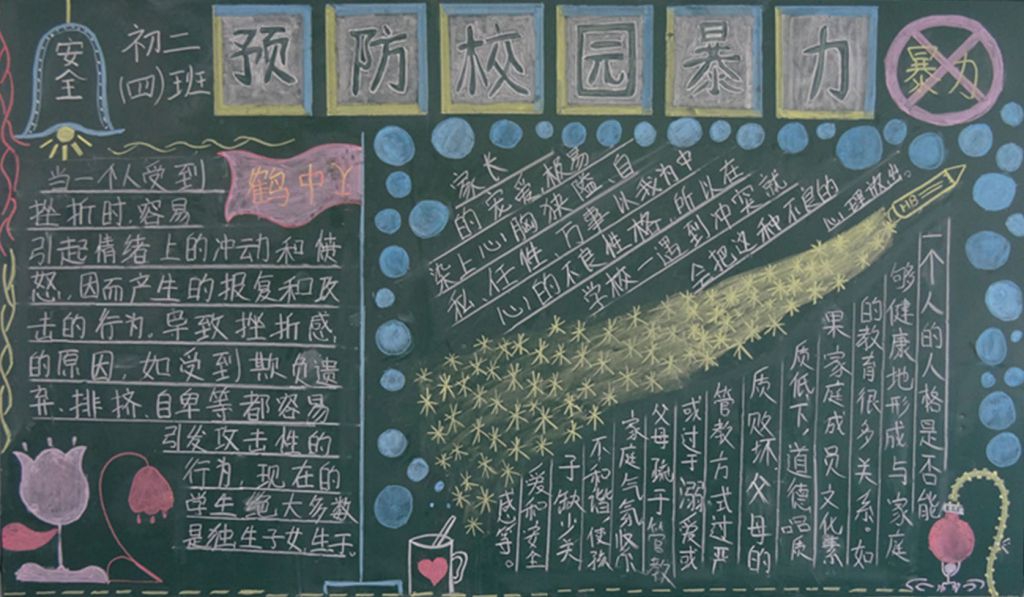 安全
初二
(四)班
预防校园暴力
暴力
鹤中丫
当一个人受到
挫折时,容易
引起情绪上的冲动和愤
怒,因而产生的报复和攻
击的行为,导致挫折感
的原因,如受到欺负遗
弃、排挤、自卑等都容易
引发攻击性的
行为,现在的
学生绝大多数
是独生子女,生于
家长
的宠爱,极易
染上心胸狭隘、自
私、任性、万事以我为中
心的不良性格,所以在
学校一遇到冲突就
会把这种不良的
心理放出。
一个人的人格是否能
够健康地形成与家庭
的教育很多关系。如
果家庭成员文化素
质低下,道德品质
质败坏,父母的
管教方式过严
或过于溺爱或
父母疏于管教
家庭气氛
不和谐使孩
子缺少关
爱和安全
感等。
HB